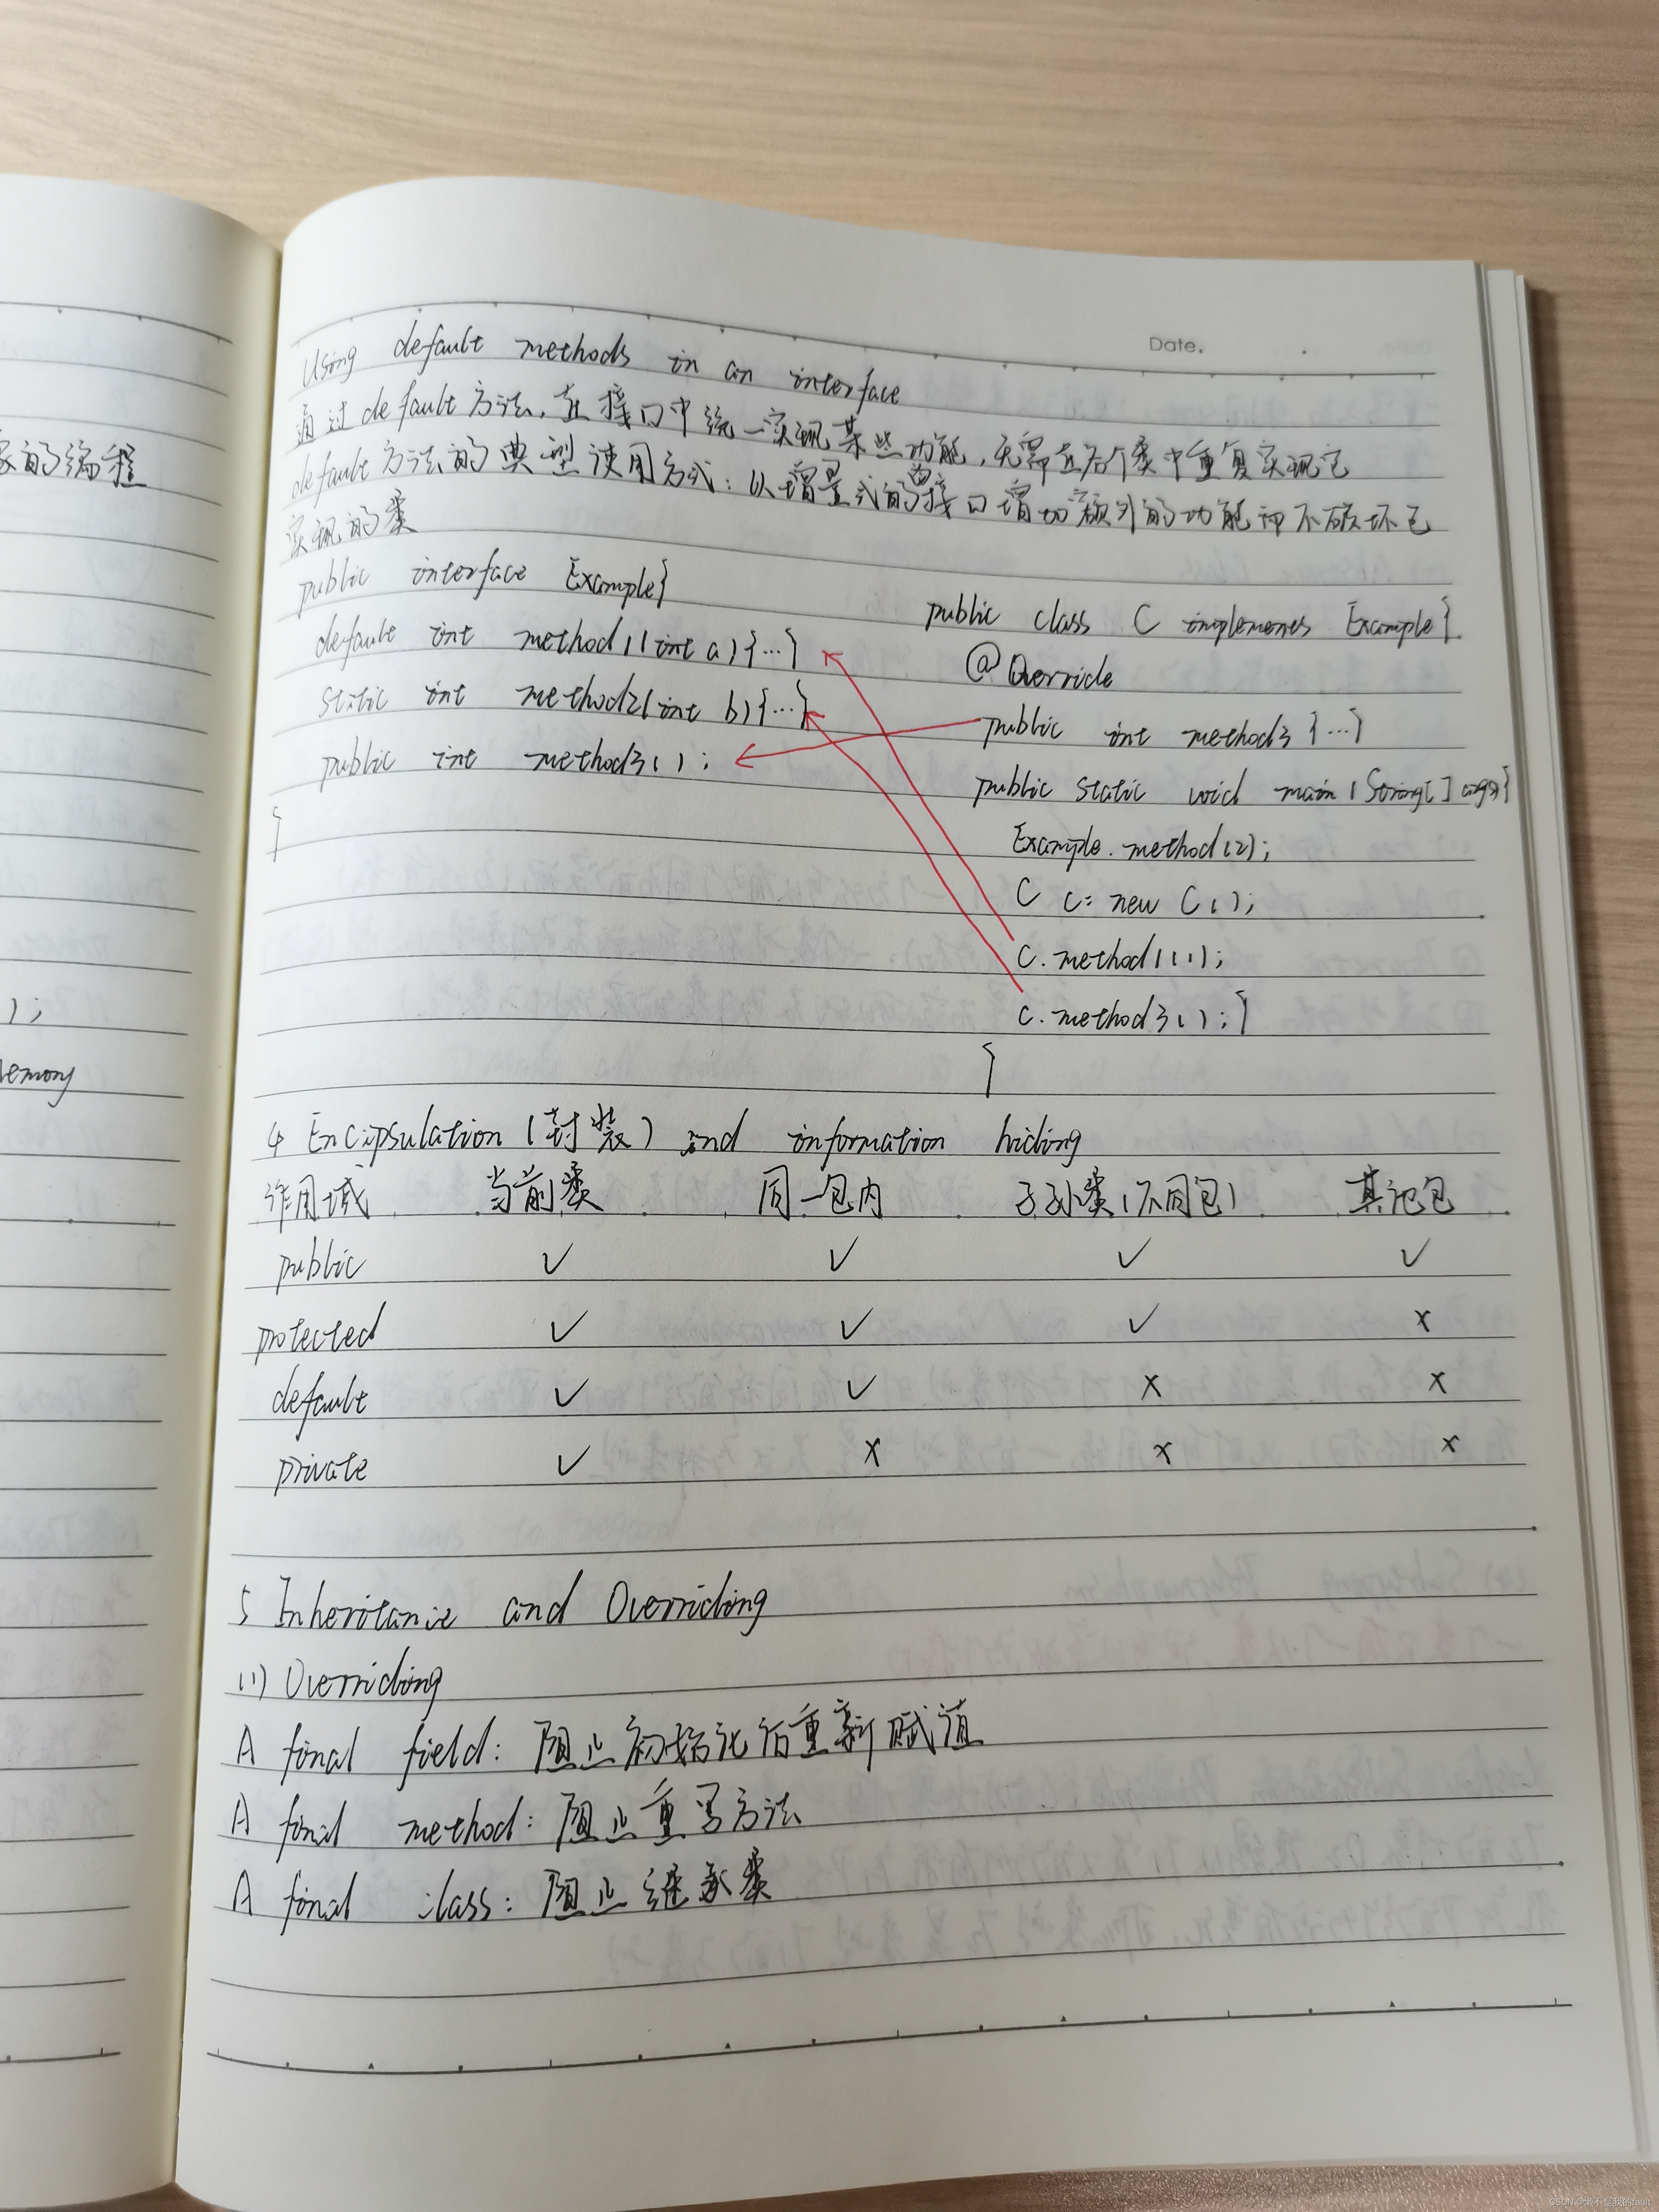 Date.
Using default methods in an interface
通过default方法,在接口中统一实现某些功能,无需在各个类中重复实现它
default方法的典型使用方式:以增量式的为接口增加额外的功能而不破坏已
实现的类
public interface Example{
default int method1(int a){...}
static int method2(int b){...}
public int method3();
}
public class C implements Example{
@Override
public int method3{...}
public static void main(String[] args){
Example.method(2);
C c= new C();
C.method1(1);
C.method3();}
}
4 Encipsulation(封装) and information hiding
作用域 当前类 同一包内 子孙类(不同包) 其他包
public ✓ ✓ ✓ ✓
protected ✓ ✓ ✓ ×
default ✓ ✓ × ×
private ✓ × × ×
5 Inheritance and Overriding
(1) Overriding
A final field: 阻止初始化后重新赋值
A final method: 阻止重写方法
A final class: 阻止继承类
的编程
);
emory